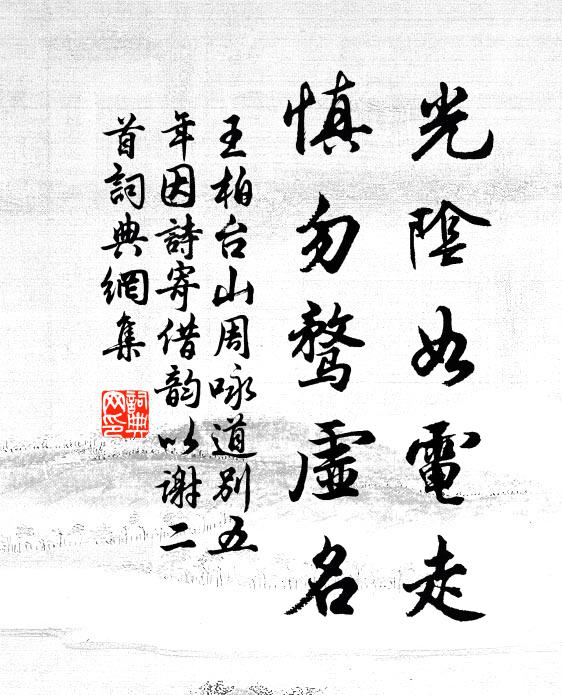 光陰如電走
慎勿鶩虛名
王柏台山周咏道別五
年因詩寄借韵以謝二
首詞典網集
詞典
网印